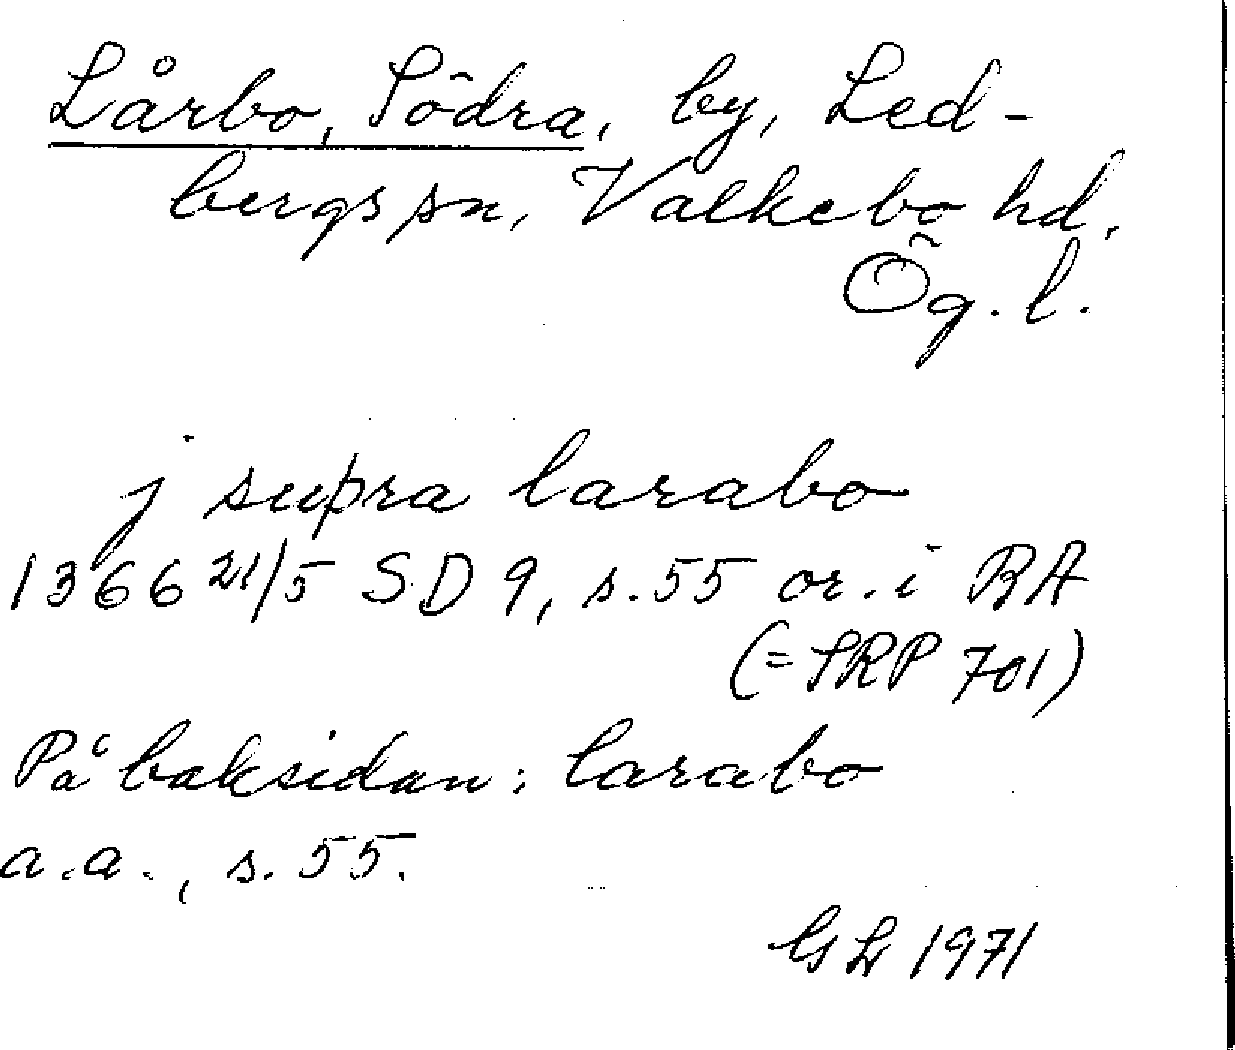 Lårbo, Södra, by, Led-
bergs sn, Valkebo hd,
Ög. l.
j supra larabo
1366 21/5 SD 9, s. 55 or. i RA
(= SRP 701)
På baksidan: larabo
a.a., s. 55.
GL 1971